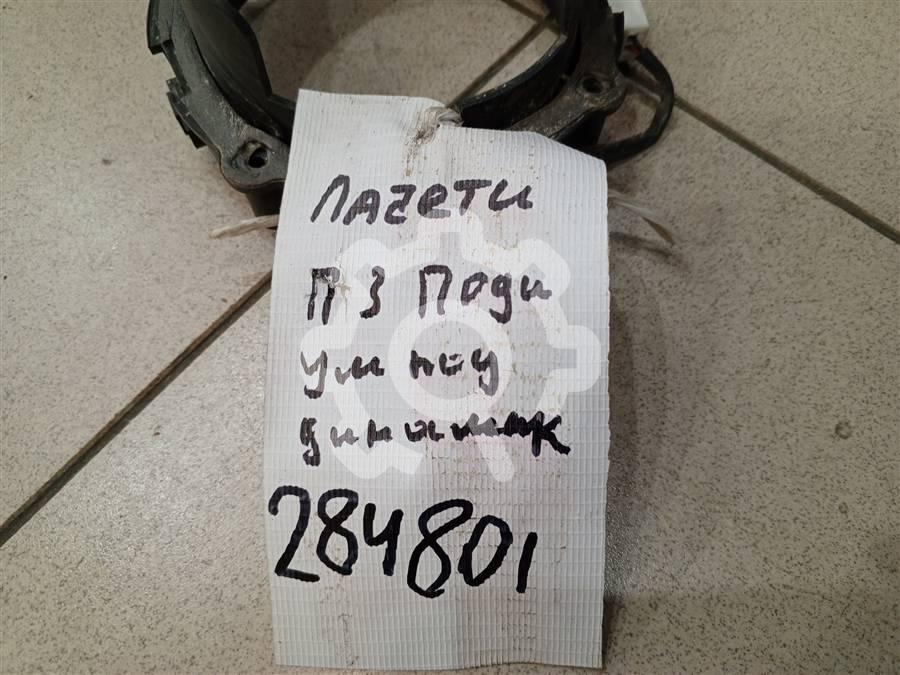 Лачети
ПЗ Поди
под
динамик
284801